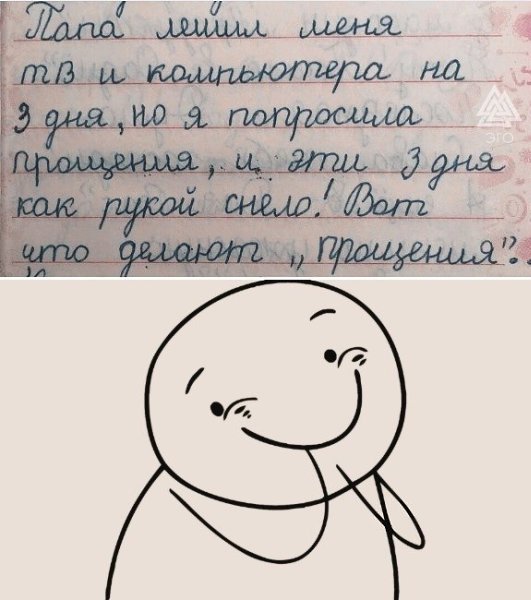 Папа лешил меня
тв и компьютера на
3 дня, но я попросила
прощения, и эти 3 дня
как рукой снело! Вот
что делают „прощения".
ЭГО